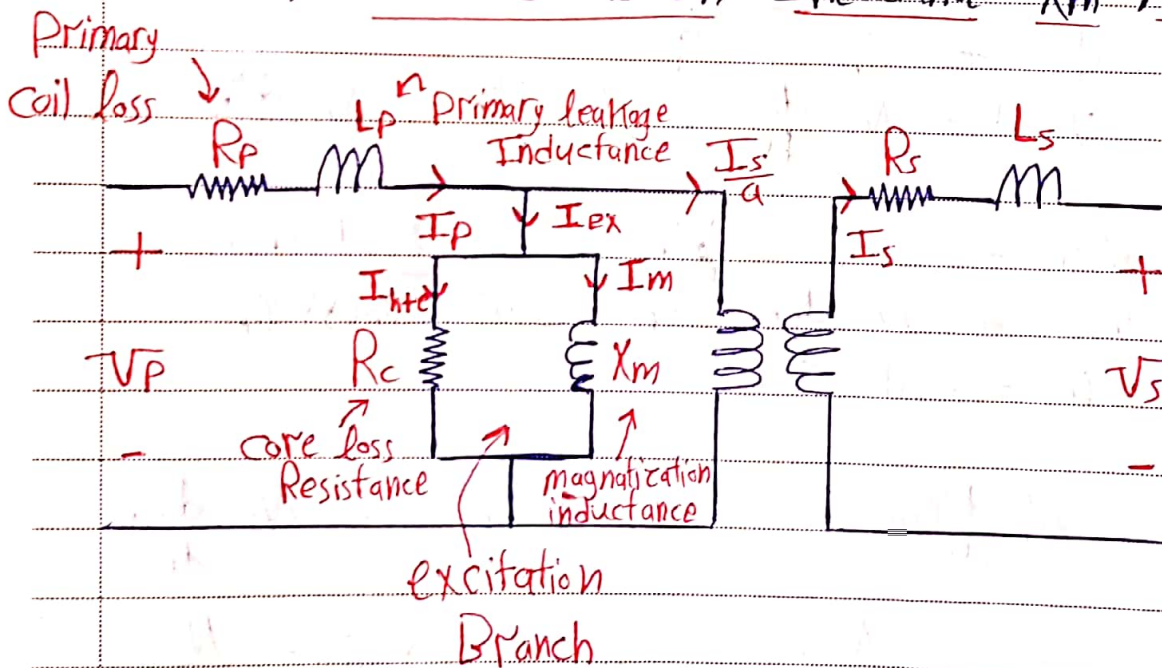 Xm
Primary
coil loss
Rp
Lp
Primary leakage
Inductance
Is/a
Rs
Ls
+
Ip
Iex
Is
+
Ih+e
Im
Vp
Rc
Xm
Vs
-
core loss
Resistance
magnatization
inductance
-
excitation
Branch